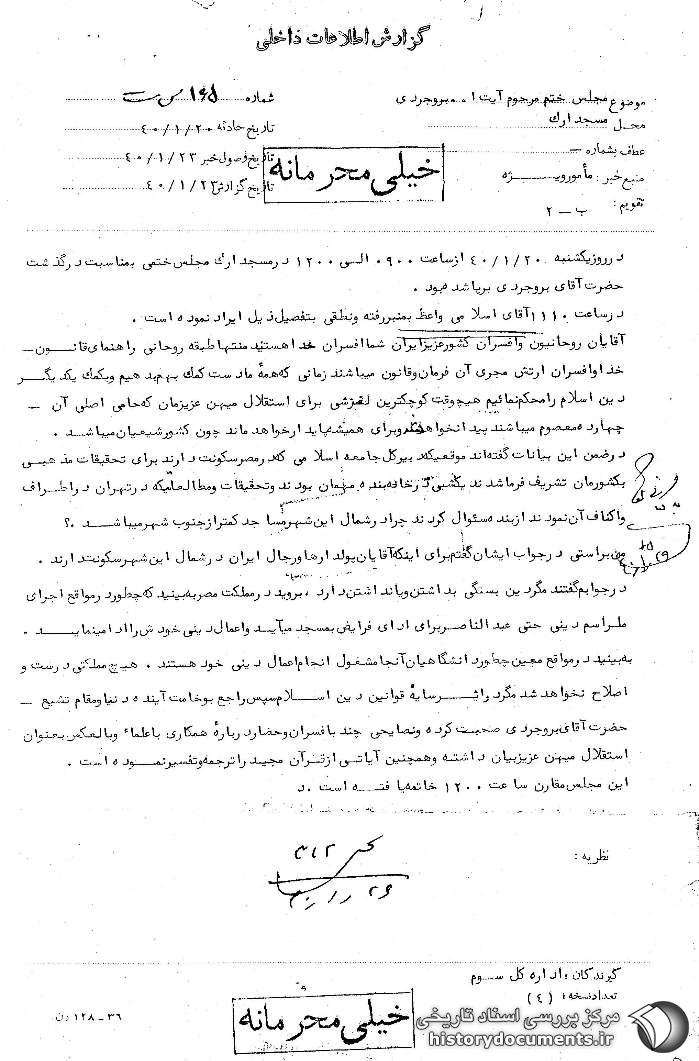 گزارش اطلاعات داخلی
موضوع مجلس ختم مرحوم آیت ا... بروجردی
شماره ۱۶۵ س ت
محل مسجد ارك
تاریخ حادثه ۴۰/۱/۲۰
عطف بشماره –
تاریخ وصول خبر ۴۰/۱/۲۳
منبع خبر: مأمور ویـــژه
تاریخ گزارش ۴۰/۱/۲۳
تقویم: ب – ۲
خیلی محرمانه
در روز یکشنبه ۴۰/۱/۲۰ از ساعت ۰۹۰۰ الی ۱۲۰۰ در مسجد ارك مجلس ختمی بمناسبت درگذشت
حضرت آقای بروجردی برپا شده بود .
در ساعت ۱۱۱۰ آقای اسلامی واعظ بمنبر رفته و نطقی بتفصیل ذیل ایراد نموده است .
آقایان روحانیون وافسران کشور عزیز ایران شما افسران خدا هستید منتها طبقه روحانی راهنمای قانون –
خدا وافسران ارتش مجری آن فرمان وقانون میباشند زمانی که همهٔ ما دست کمك بهم بدهیم وبکمك یکدیگر
دین اسلام را محکم نمائیم هیچوقت کوچکترین لغزشی برای استقلال میهن عزیزمان که حامی اصلی آن –
چهارده معصوم میباشند پیدا نخواهد شد وبرای همیشه پایدار خواهد ماند چون کشور شیعیان میباشد .
در ضمن این بیانات گفته‌اند موقعیکه دبیر کل جامعه اسلامی که در مصر سکونت دارند برای تحقیقات مذهبی
بکشورمان تشریف فرما شدند یکشبی در خانه بنده مهمان بودند وتحقیقات ومطالعاتیکه در تهران در اطراف
واکناف آن نمودند از بنده سئوال کردند چرا در شمال این شهر مساجد کمتر از جنوب شهر میباشد .؟
من براستی در جواب ایشان گفتم برای اینکه آقایان پولدارها ورجال ایران در شمال این شهر سکونت دارند .
در جوابم گفتند مگر دین بستگی بداشتن ویا نداشتن دارد ، بروید در مملکت مصر به بینید که چطور در مواقع اجرای
مراسم دینی حتی عبدالناصر برای ادای فرایض بمسجد میآیند واعمال دینی خودش را ادا مینماید .
به بینید در مواقع معین چطور دانشگاهیان آنجا مشغول انجام اعمال دینی خود هستند . هیچ مملکتی درست و
اصلاح نخواهد شد مگر در اثر سایهٔ قوانین دین اسلام سپس راجع بوخامت آینده دنیا ومقام تشیع –
حضرت آقای بروجردی صحبت کرده ونصایحی چند بافسران وحضار دربارهٔ همکاری با علماء وبالعکس بعنوان
استقلال میهن عزیز بیان داشته وهمچنین آیاتی از قرآن مجید را ترجمه وتفسیر نموده است .
این مجلس مقارن ساعت ۱۲۰۰ خاتمه یافته است . د
نظریه :
۳۱۲
گیرندگان : اداره کل سوم
تعداد نسخه : (۴)
۳۶ – ۱۲۸ رن
خیلی محرمانه
مرکز بررسی اسناد تاریخی
historydocuments.ir